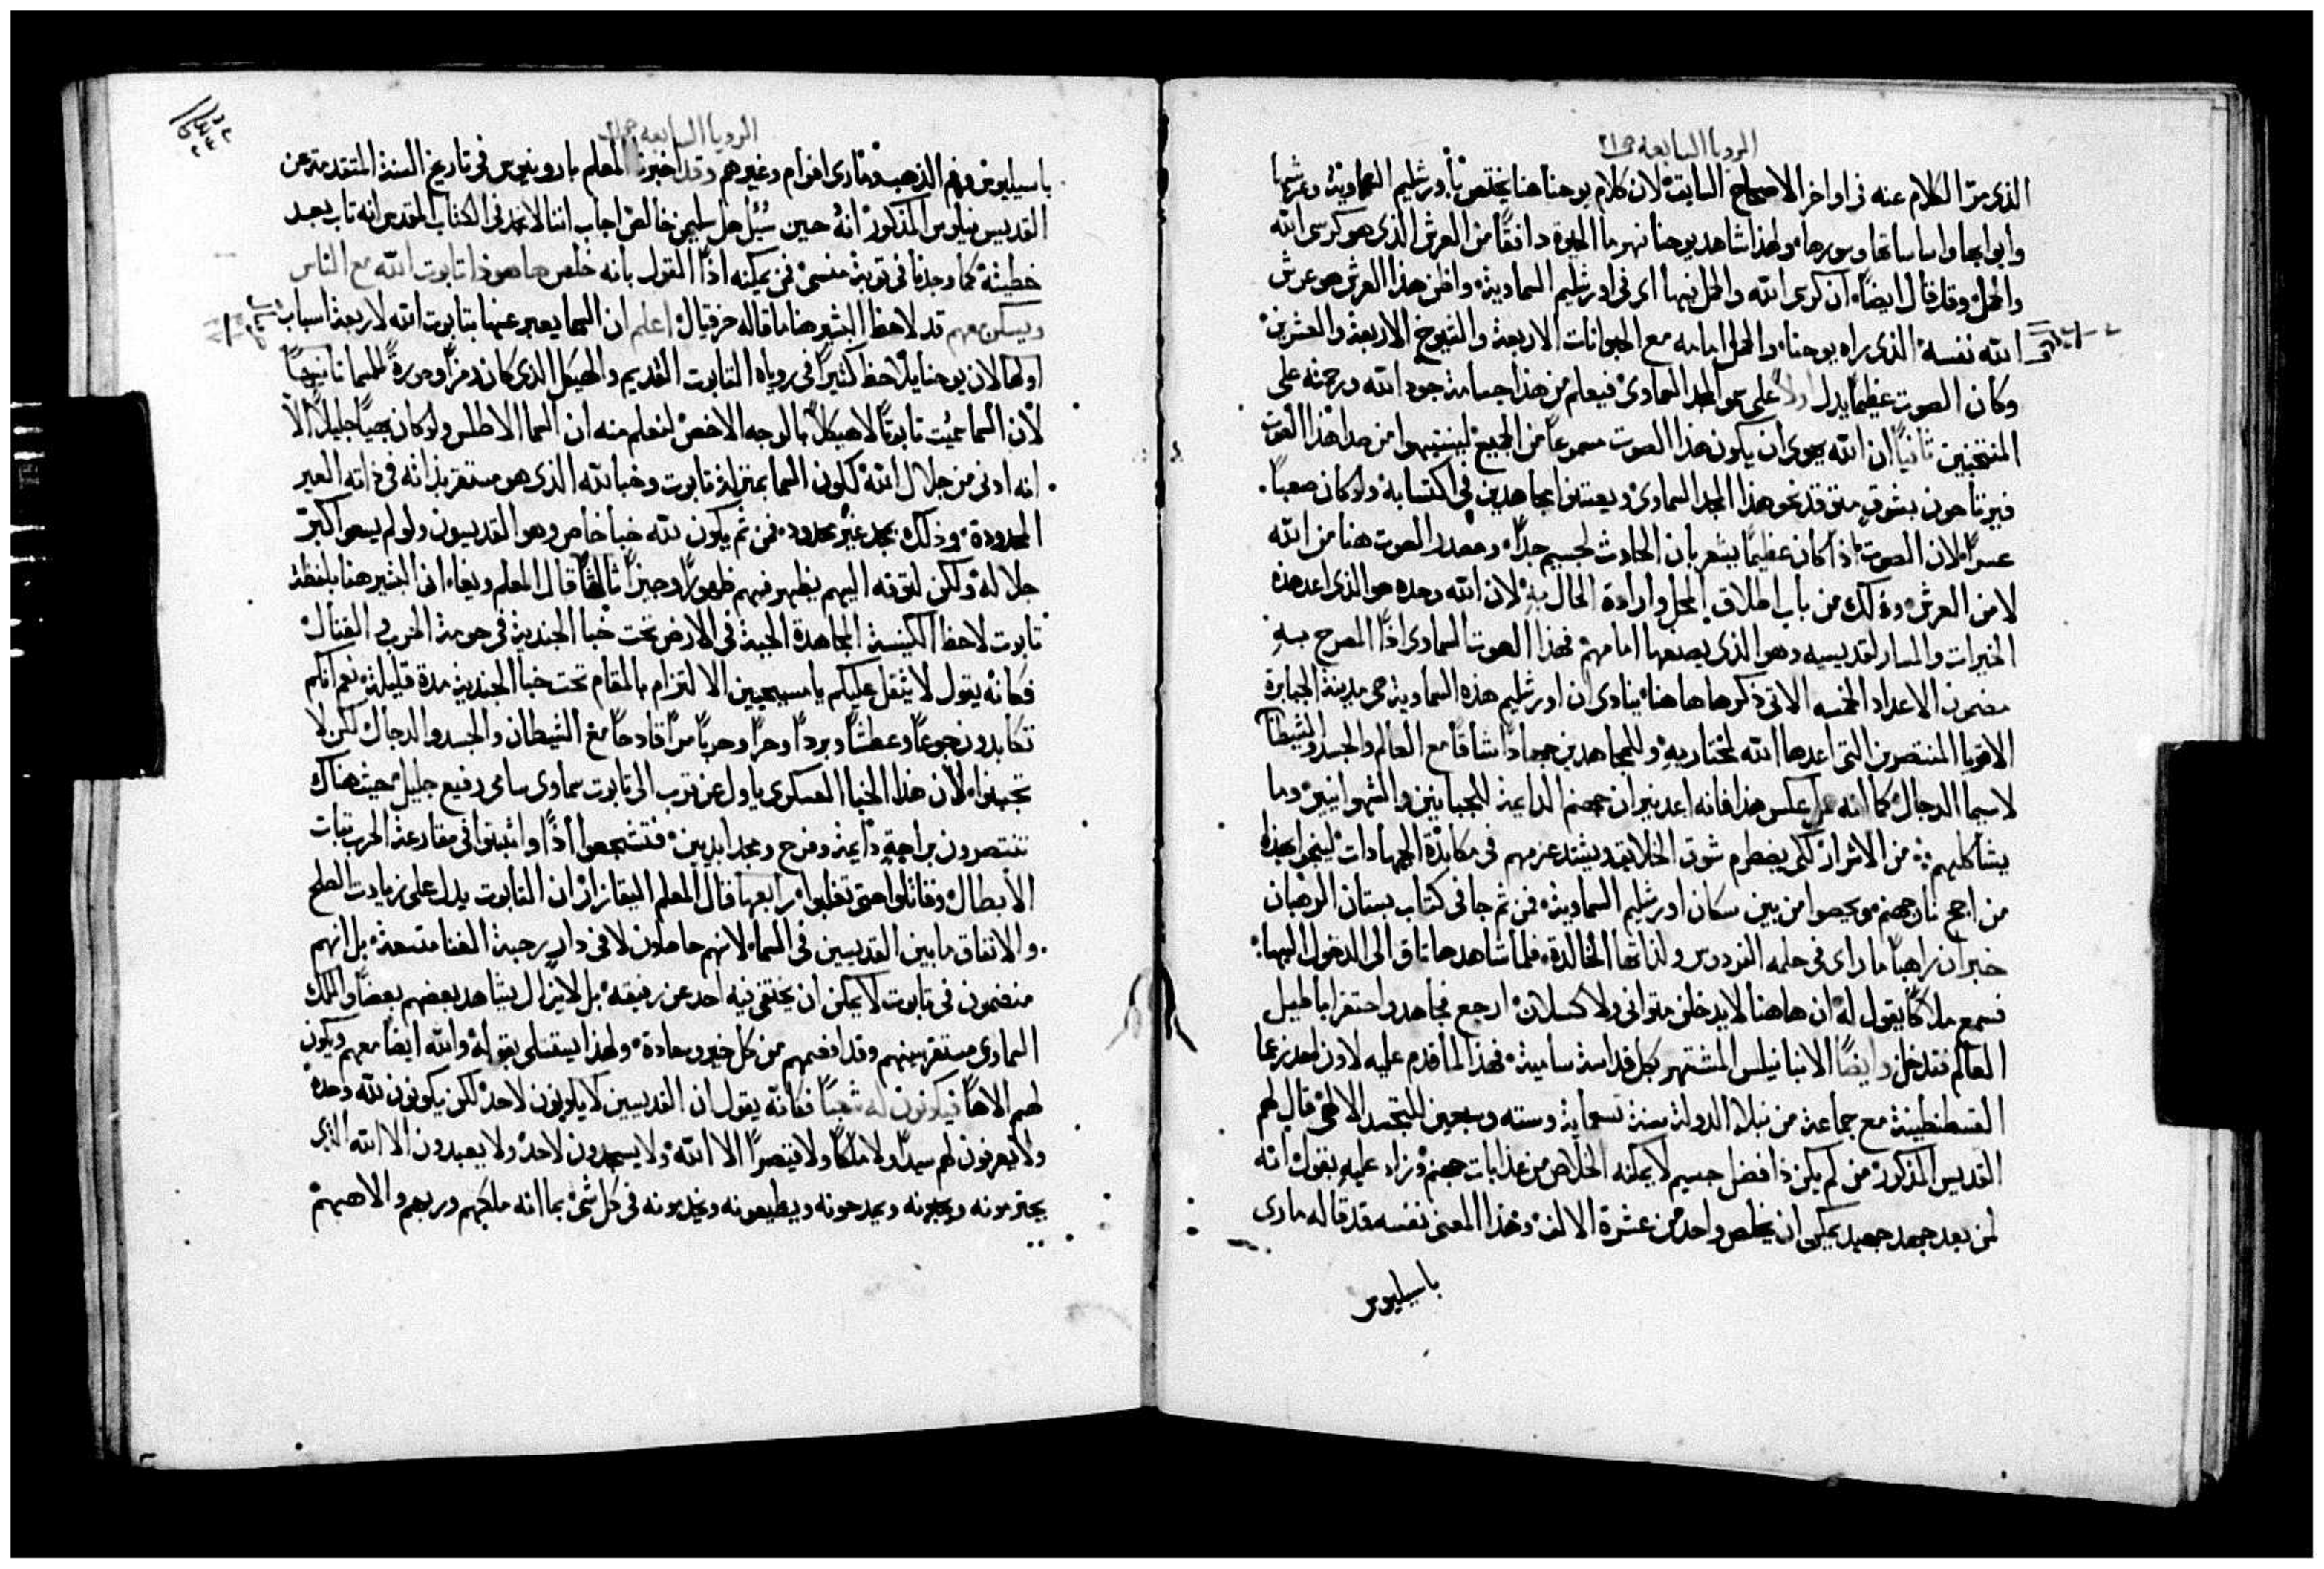 الرويا السابعه ص٢١
الذى مرّ الكلام عنه فى اواخر الاصحاح السابق لان كلام يوحنا هنا يختص باورشليم السماوية وعرشها
وابوابها واساساتها وسورها ولهذا شاهد يوحنا نهر ما الحيوة دافقًا من العرش الذى هو كرسى الله
والحمل وقد قال ايضًا ان كرسى الله والحمل فيها اى فى اورشليم السماوية واظن هذا العرش هو عرش
الله نفسه الذى راه يوحنا والحمل امامه مع الحيوانات الاربعة والشيوخ الاربعة والعشرين
وكان الصوت عظيمًا يدل اولاً على سمو المجد السماوى فيعلم من هذا جسامة جود الله ورحمته على
المنتخبين ثانيًا ان الله يهوى ان يكون هذا الصوت مسموعًا من الجميع لينتبهوا من صدا هذا الصوت
فيرتاحون بشوق متوقد نحو هذا المجد السماوى ويعتنون مجاهدين فى اكتسابه ولو كان صعبًا
عسرًا لان الصوت اذا كان عظيمًا يشعر بان الحادث لجسيم جدًا ومصدر الصوت هنا من الله
لا من العرش وذلك من باب اطلاق المحل وارادة الحال به لان الله وحده هو الذى اعد هذه
الخيرات والمسار لقديسيه وهو الذى يضعها امامهم فهذا الصوت السماوى اذًا المصرح به
مضمون الاعداد الخمسه الاتى ذكرها هاهنا ينادى ان اورشليم هذه السماوية هى مدينة الجبابرة
الاقويا المنتصرين التى اعدها الله لمختاريه وللمجاهدين جهادًا شاقًا مع العالم والجسد والشيطان
لاسيما الدجال كما انه على عكس هذا فانه اعد نيران جهنم الدايمة للجبانين والشهوانيين وما
يشاكلهم من الاشرار لكى يضطرم شوق الخلايق ويشتد عزمهم فى مكابدة الجهادات لينجوا بهذا
من اجج نار جهنم ويحصوا من بين سكان اورشليم السماوية فمن ثم جا فى كتاب بستان الرهبان
خبر ان راهبًا ما راى فى حلمه الفردوس ولذاتها الخالدة فلما شاهدها تاق الى الدخول اليها
فسمع ملاكًا يقول له ان هاهنا لا يدخل متوانى ولا كسلان ارجع فجاهد واحتقر اباطيل
العالم فتدخل وايضًا الانبا نيلس المشتهر بكل قداسة سامية فهذا لما قدم عليه لاون
القسطنطينة مع جماعة من نبلا الدولة سنة تسعماية وسته وسبعين للتجسد الالهى قال لهم
القديس المذكور من لم يكن ذا فضل جسيم لا يمكنه الخلاص من عذابات جهنم وزاد عليه بقوله انه
لمن بعد جهد جهيد يمكن ان يخلص واحد من عشرة الالف وهذا المعنى نفسه قد قاله مارى
باسيليوس
الرويا السابعه ص٢١
باسيليوس وفم الذهب ومارى افرام وغيرهم وقد اخبرنا المعلم بارونيوس فى تاريخ السنة المتقدمة عن
القديس نيلوس المذكور انهُ حين سُئِل هل سليمن خالص اجاب اننا لا نجد فى الكتاب المقدس انه تاب بعد
خطيئته كما وجدنا فى توبة منسى فمن يمكنه اذًا القول بانه خلص هاهوذا تابوت الله مع الناس
ويسكن معهم قد لاحظ البشير هنا ما قاله حزقيال اعلم ان السما يعبر عنها بتابوت الله لاربعة اسباب
اولها لان يوحنا يلاحظ كثيرًا فى روياه التابوت القديم والهيكل الذى كان رمزًا وصورةً للسما ثانيًا
لان السما سُميت تابوتًا لا هيكلاً بالوجه الاخص لنعلم منه ان السما الاطلس ولو كان بهيًا جليلاً الا
انه ادنى من جلال الله لكون السما بمنزلة تابوت وخبا لله الذى هو مستقر بذاته فى ذاته الغير
المحدودة وذلك بمجد غير محدود فمن ثم يكون لله خبا خاص وهو القديسون ولو لم يسعوا اكبر
جلاله ولكن لتوقه اليهم يظهر فيهم ظهورًا وجيزًا ثالثًا قال المعلم ويغا ان البشير هنا بلفظة
تابوت لاحظ الكنيسة المجاهدة الجبة فى الارض تحت خبا الجندية فى حومة الحرب والقتال
فكانه يقول لا يثقل عليكم يا مسيحيين الالتزام بالمقام تحت خبا الجندية مدة قليلة نعم انكم
تكابدون جوعًا وعطشًا وبردًا وحرًا وحربًا مرًا فادحًا مع الشيطان والجسد والدجال لكن لا
تجبنوا لان هذا الخبا العسكرى ياول عن قرب الى تابوت سماوى سامى رفيع جليل حيث هناك
تنتصرون براحةٍ دايمة وفرح ومجد ابديين فتشجعوا اذًا واثبتوا فى مقارعة الحرب ثبات
الابطال وقاتلوا حتى تغلبوا رابعها قال المعلم البقازار ان التابوت يدل على زيادت الصلح
والاتفاق ما بين القديسين فى السما لانهم حاصلون لا فى دار رحبة الفنا متسعة بل انهم
منضمون فى تابوت لا يمكن ان يختفى فيه احد عن رفيقه بل لا يزال يشاهد بعضهم بعضًا والملك
السماوى مستقر بينهم وقد افعمهم من كل خير وسعادة ولهذا يستتلى بقوله والله ايضًا معهم ويكون
لهم الاهًا فيكونون له شعبًا فكانه يقول ان القديسين لا يكونون لاحد لكن يكونون لله وحده
ولا يعرفون لهم سيدًا ولا ملكًا ولا قيصرًا الا الله ولا يسجدون لاحد ولا يعبدون الا الله الذى
يحترمونه ويحبونه ويمدحونه ويطيعونه ويخدمونه فى كل شى بما انه ملكهم وربهم والاههم